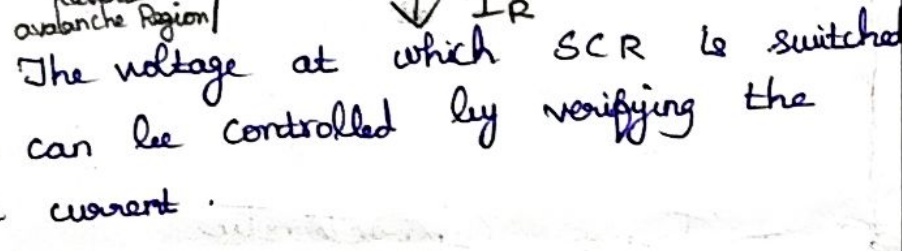 avalanche Region
I_R
The voltage at which SCR is switched
can be controlled by verifying the
current.